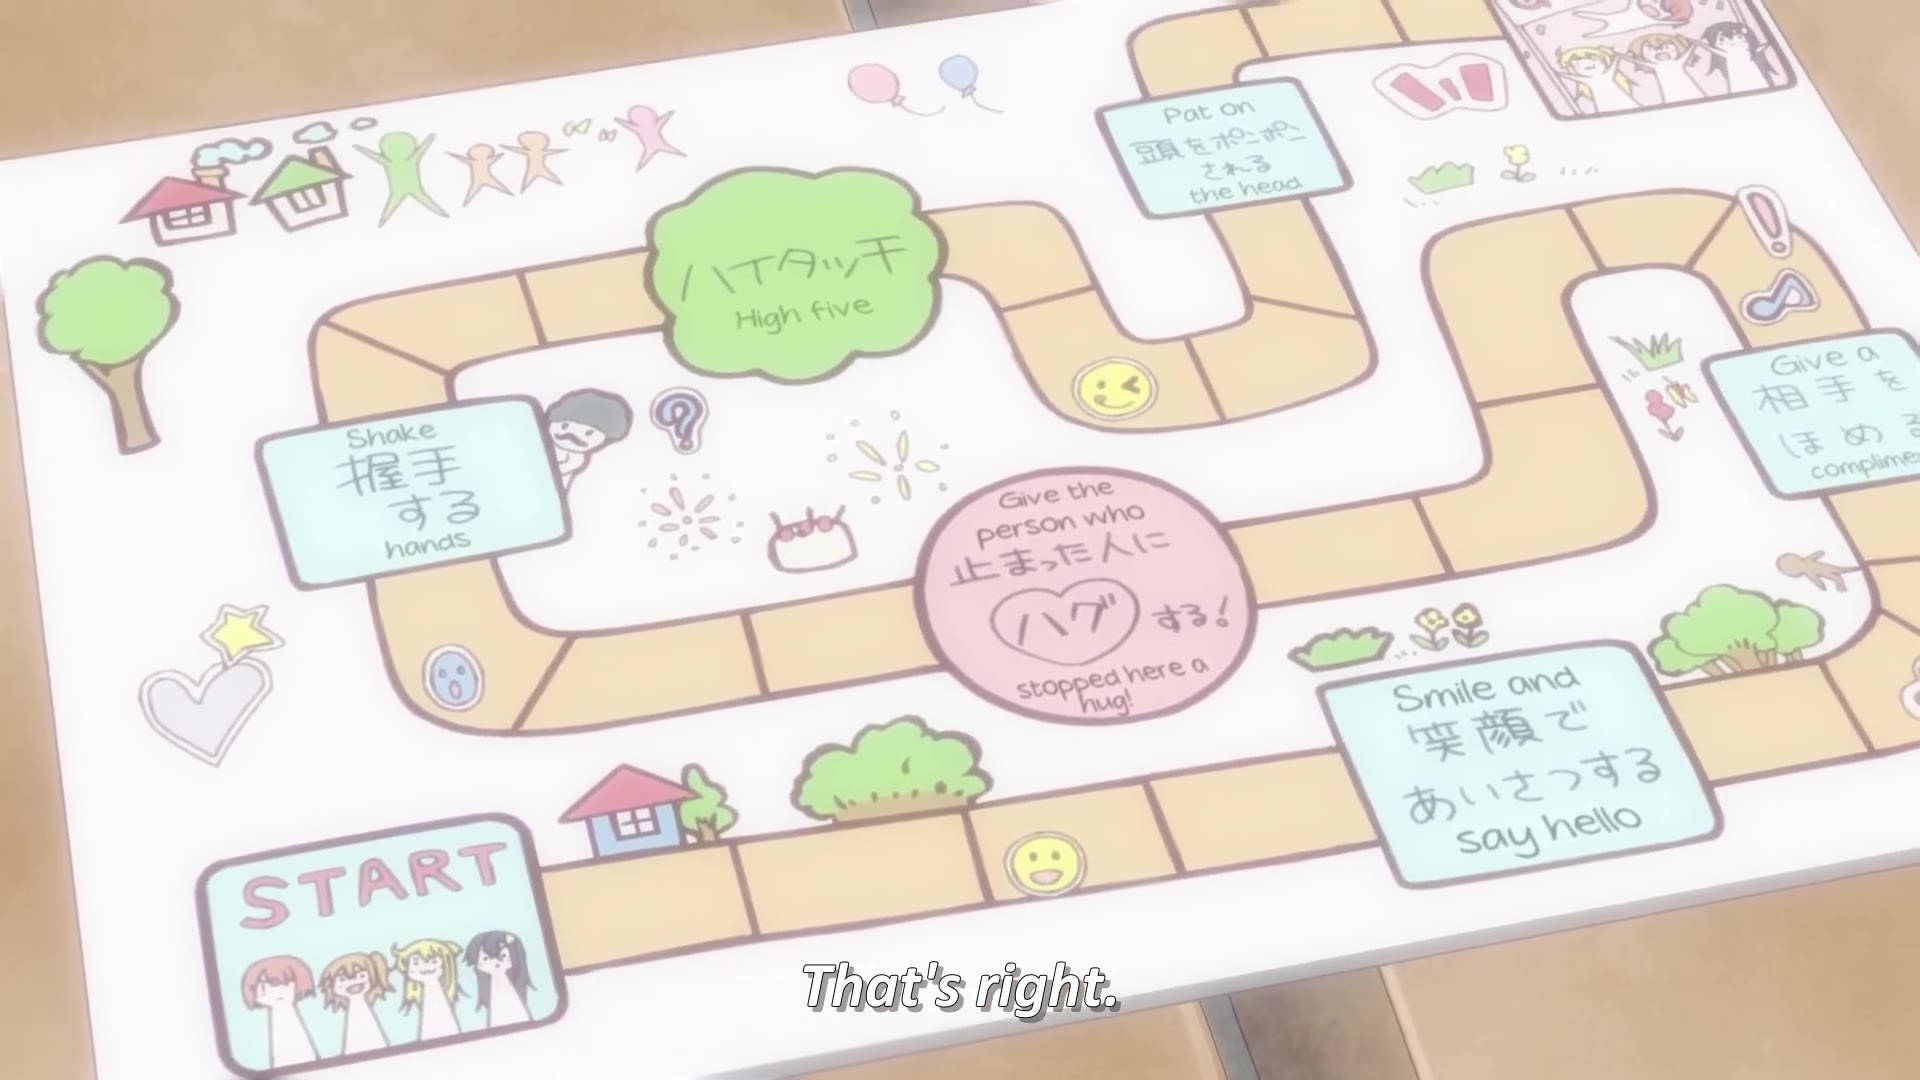 Pat on
頭をポンポン
される
the head
ハイタッチ
High five
Give a
相手を
ほめる
complime
Shake
握手
する
hands
Give the
person who
止まった人に
ハグする!
stopped here a
hug!
Smile and
笑顔で
あいさつする
say hello
START
That's right.